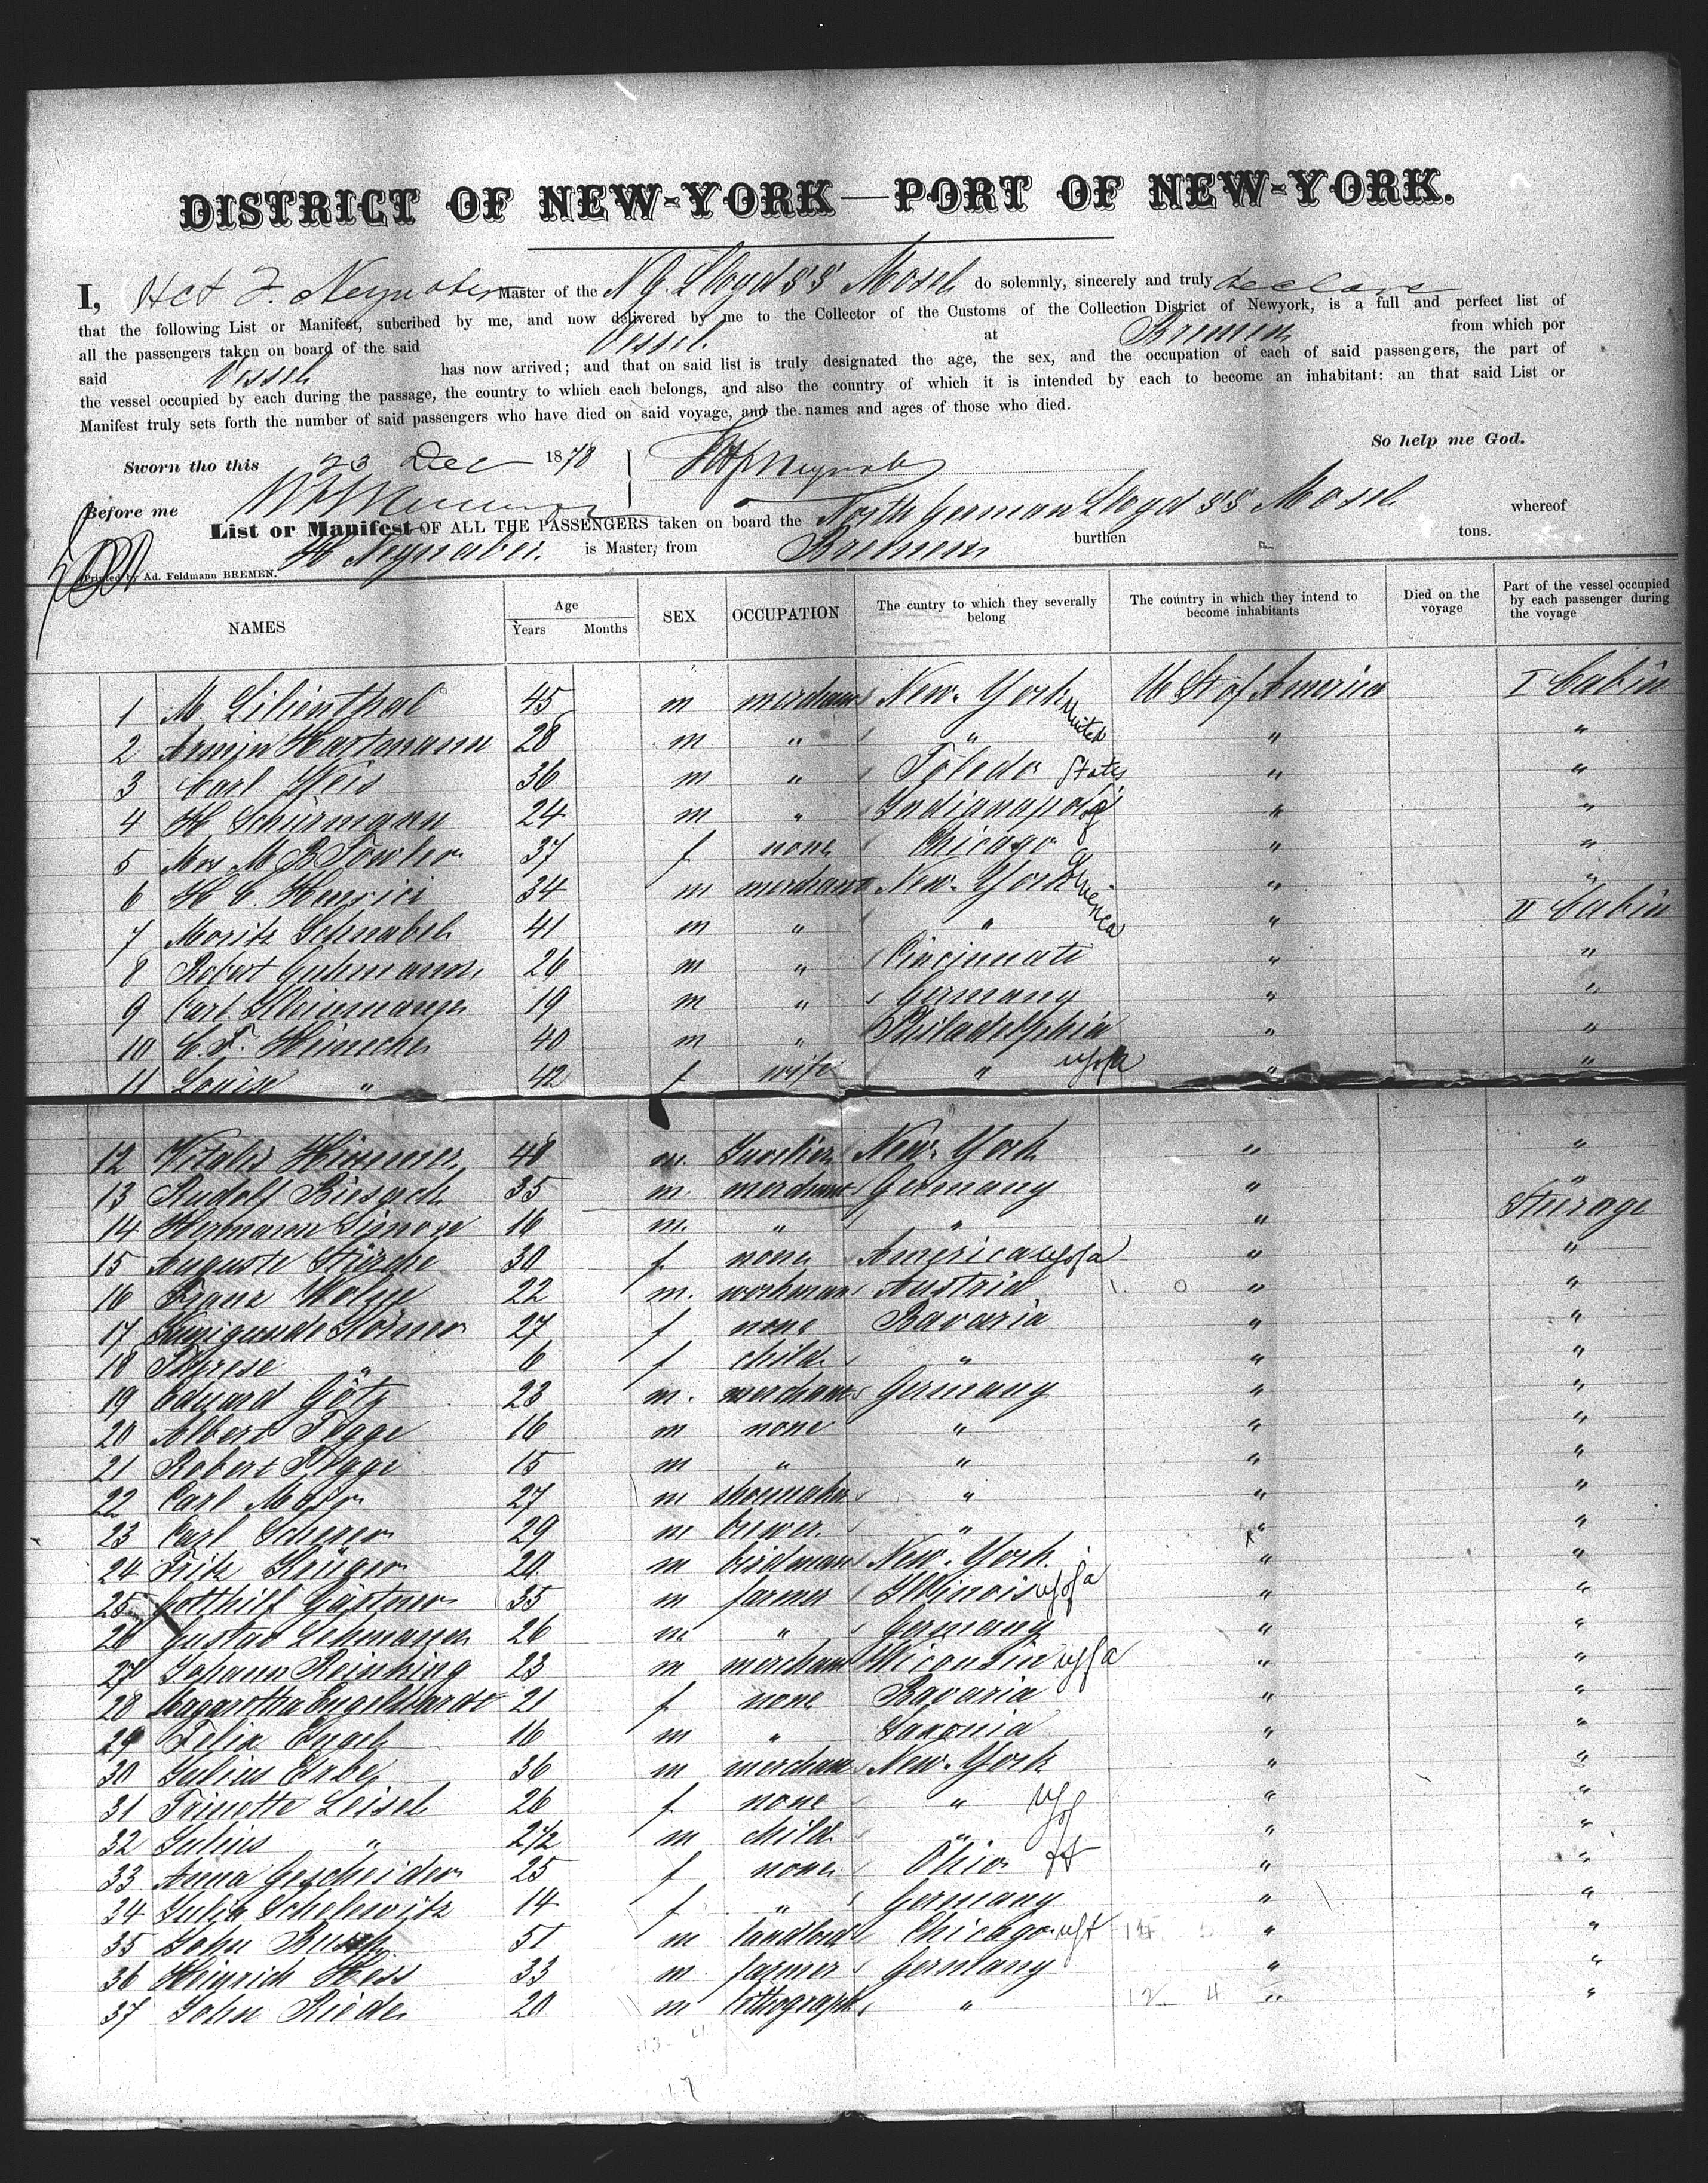 DISTRICT OF NEW-YORK—PORT OF NEW-YORK.
I, Hct F. Neynaber Master of the N G. Lloyd SS Mosel do solemnly, sincerely and truly declare
that the following List or Manifest, subcribed by me, and now delivered by me to the Collector of the Customs of the Collection District of Newyork, is a full and perfect list of
all the passengers taken on board of the said Vessel at Bremen from which por
said Vessel has now arrived; and that on said list is truly designated the age, the sex, and the occupation of each of said passengers, the part of
the vessel occupied by each during the passage, the country to which each belongs, and also the country of which it is intended by each to become an inhabitant: an that said List or
Manifest truly sets forth the number of said passengers who have died on said voyage, and the names and ages of those who died.
So help me God.
Sworn tho this 23 Dec 1878
Before me
List or Manifest OF ALL THE PASSENGERS taken on board the North German Lloyd SS Mosel whereof
H Neynaber is Master, from Bremen burthen tons.
Printed by Ad. Feldmann BREMEN.
NAMES Age Years Months SEX OCCUPATION The cuntry to which they severally belong The country in which they intend to become inhabitants Died on the voyage Part of the vessel occupied by each passenger during the voyage
1 M. Lilienthal 45 m merchant New-York U St of America I Cabin
2 Armin Hartmann 28 m " " United " "
3 Carl Weis 36 m " Toledo States " "
4 H Schürmann 24 m " Indianapolis of " "
5 Mrs M B Fowler 37 f none Chicago " "
6 H C. Henrici 34 m merchant New-York America " "
7 Moritz Schnabel 41 m " " " II Cabin
8 Robert 26 m " Cincinnati " "
9 Carl 19 m " Germany " "
10 C. F. Heinecke 40 m " Philadelphia " "
11 Louise " 42 f wife " USofA " "
12 Vitalis Himmer 48 m. New-York " "
13 Rudolf 35 m. merchant Germany " "
14 Hermann Simon 16 m. " " " Steerage
15 Auguste 30 f none America USofA " "
16 Franz 22 m. workman Austria " "
17 Kunigunde Körner 27 f none Bavaria " "
18 Therese " 6 f child " " "
19 Eduard Götz 23 m. merchant Germany " "
20 Albert Tegge 16 m none " " "
21 Robert Tegge 15 m " " " "
22 Carl 27 m shoemaker " " "
23 Carl 29 m brewer " " "
24 Fritz Krüger 20 m birdman New-York " "
25 Gotthilf Gärtner 35 m farmer Illinois USofA " "
26 Gustav Lehmann 26 m " Germany " "
27 Johann Reinking 23 m merchant Wiconsin USofA " "
28 Margaretha Engelhardt 21 f none Bavaria " "
29 Felix Engel 16 m " Saxonia " "
30 Julius Erbe 36 m merchant New-York " "
31 Trinette Leisel 26 f none " " "
32 Julius " 2 1/2 m child " " "
33 Anna Gescheider 25 f none Ohio " "
34 Julia Schelewitz 14 f " Germany " "
35 John 51 m landlord Chicago " "
36 Heinrich Hess 33 m. farmer Germany " "
37 John Riede 20 m lithograph " " "